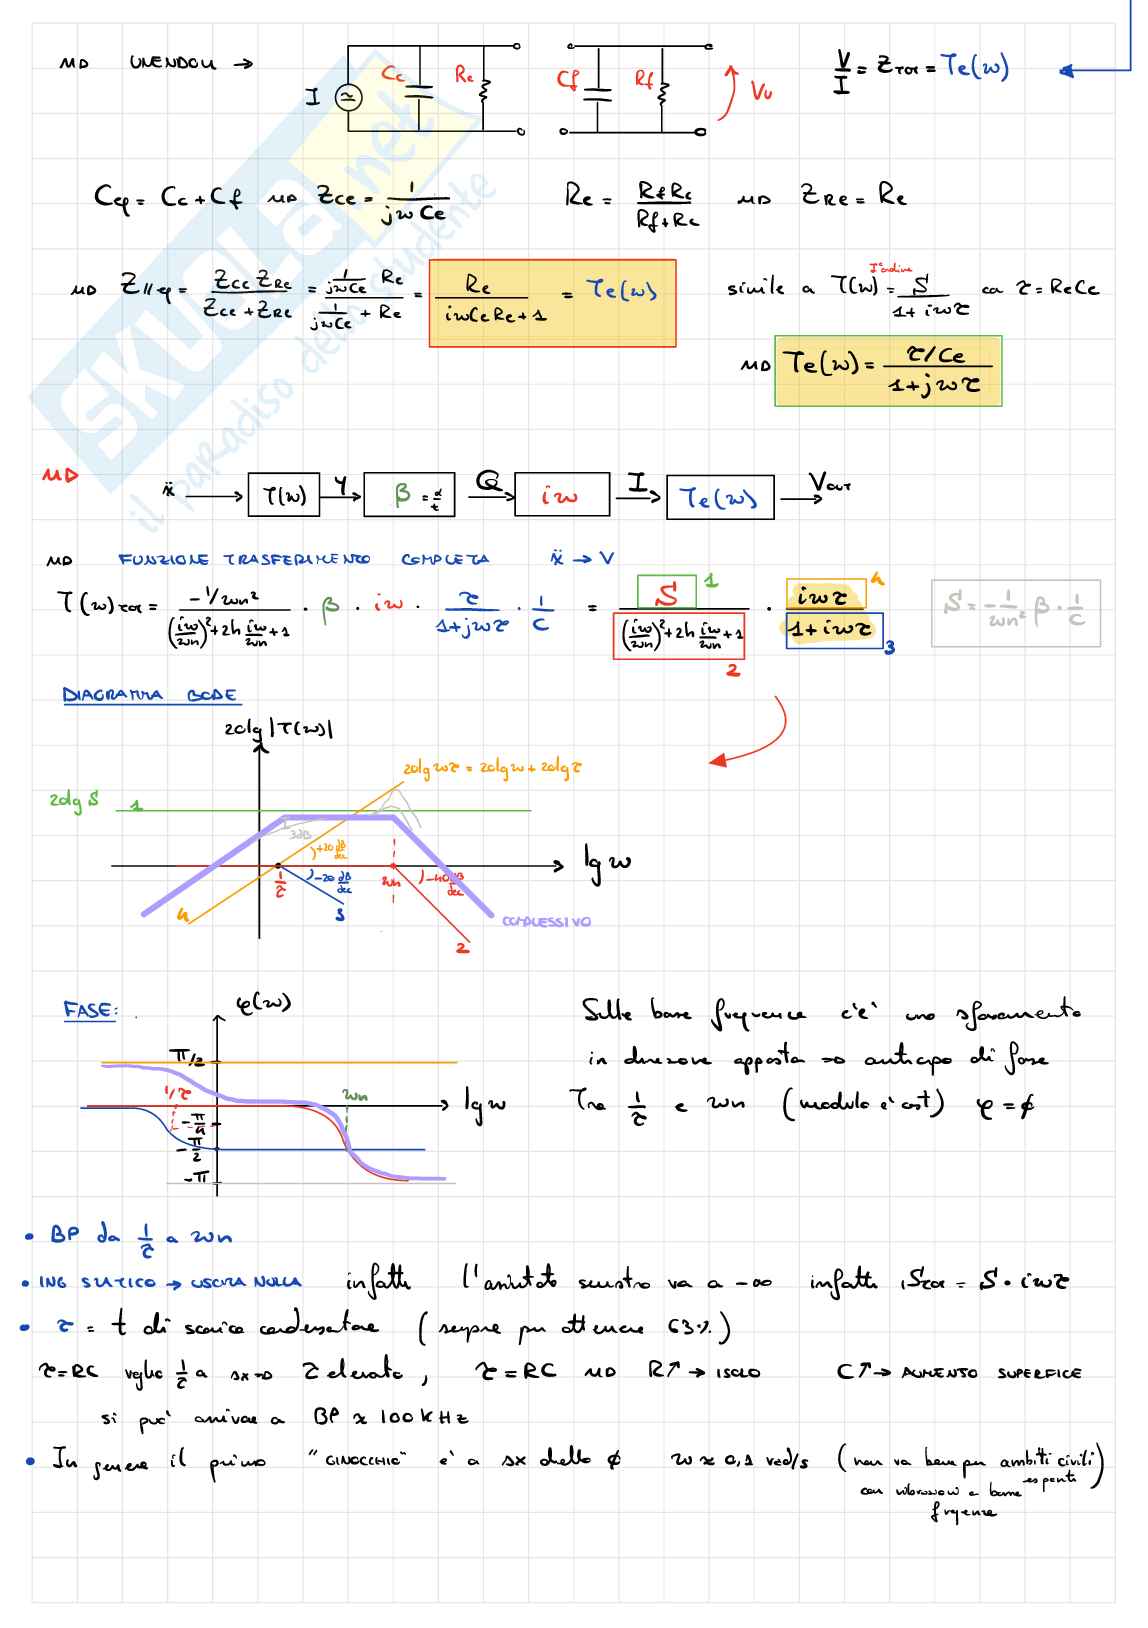 → UNENDOLI →
I Cc Re Cf Rf Vu
V/I = Z TOT = Te(ω)
Ceq = Cc + Cf → Zce = 1/(jωCe)
Re = RfRc/(Rf+Rc) → ZRe = Re
→ Z//eq = Zce ZRe/(Zce + ZRe) = (1/(jωCe) Re)/(1/(jωCe) + Re) = Re/(iωCeRe+1) = Te(ω)
simile a T(ω) = S/(1+iωτ) con τ = ReCe
I° ordine
→ Te(ω) = (τ/Ce)/(1+jωτ)
→ ẍ → T(ω) → y → β = α/t → Q → iω → I → Te(ω) → Vout
→ FUNZIONE TRASFERIMENTO COMPLETA ẍ → V
T(ω)TOT = (-1/ωn²)/((iω/ωn)²+2h iω/ωn+1) · β · iω · τ/(1+jωτ) · 1/C = S/((iω/ωn)²+2h iω/ωn+1) · iωτ/(1+iωτ)
1 2 3 4
S = -1/ωn² β · 1/C
DIAGRAMMA BODE
20lg |T(ω)|
20lgωτ = 20lgω + 20lgτ
20lg S 1
3dB
+20 dB/dec
lg ω
1/τ -20 dB/dec ωn -40 dB/dec
4 3 2
COMPLESSIVO
FASE:
φ(ω)
π/2
1/τ ωn lg ω
-π/4
-π/2
-π
Sulle basse frequenze c'è uno sfasamento
in direzione opposta → anticipo di fase
Tra 1/τ e ωn (modulo è cost) φ = ϕ
• BP da 1/τ a ωn
• ING STATICO → USCITA NULLA infatti l'asintoto sinistro va a -∞ infatti STOT = S · iωτ
• τ = t di scarica condensatore (sempre per ottenere 63%)
τ=RC voglio 1/τ a sx → τ elevato, τ=RC → R↑ → ISOLO C↑ → AUMENTO SUPERFICE
si può arrivare a BP ≈ 100 kHz
• In genere il primo "GINOCCHIO" è a sx dello ϕ ω ≈ 0,1 rad/s (non va bene per ambiti civili)
es ponti
con vibrazioni a basse
frequenze
SKUOLA.net
il paradiso dello studente